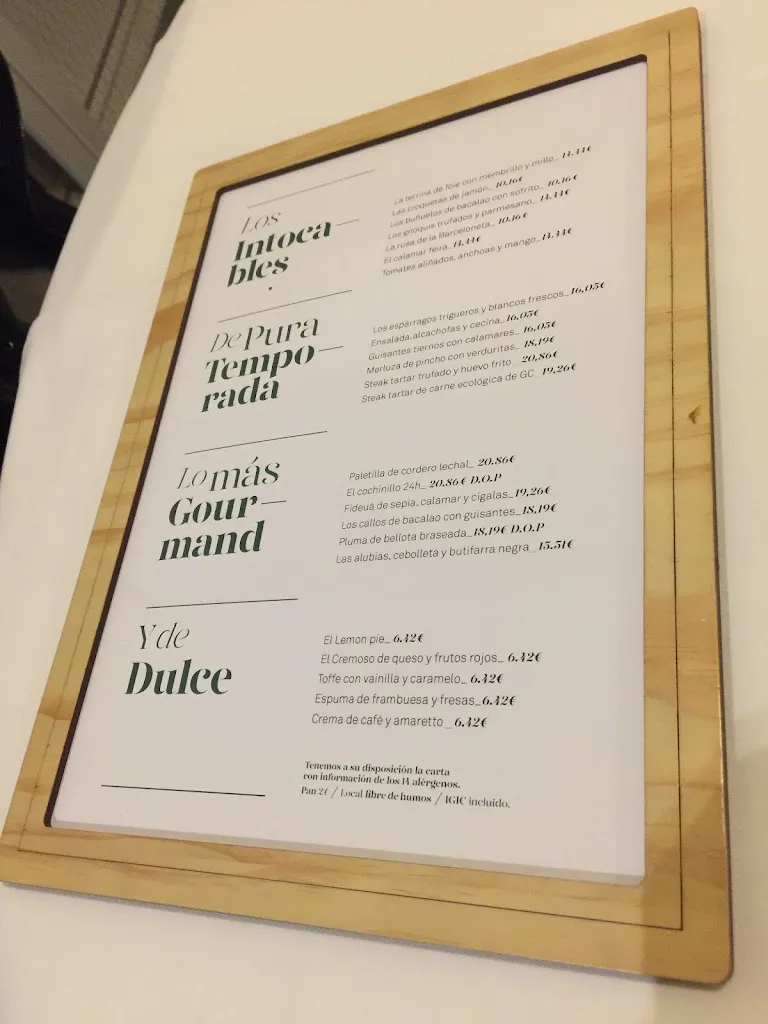 Los
Intoca—
bles
La terrina de foie con membrillo y millo_ 14.44€
Las croquetas de jamón_ 10.16€
Los buñuelos de bacalao con sofrito_ 10.16€
Los gnoquis trufados y parmesano_ 14.44€
La rusa de la Barceloneta_ 10.16€
El calamar feira_14.44€
Tomates aliñados, anchoas y mango_14.44€
De Pura
Tempo—
rada
Los espárragos trigueros y blancos frescos_16,05€
Ensalada,alcachofas y cecina_16,05€
Guisantes tiernos con calamares_ 16,05€
Merluza de pincho con verduritas_ 18,19€
Steak tartar trufado y huevo frito_ 20,86€
Steak tartar de carne ecológica de GC_ 19,26€
Lo más
Gour—
mand
Paletilla de cordero lechal_ 20.86€
El cochinillo 24h_ 20.86€ D.O.P
Fideuá de sepia, calamar y cigalas_19,26€
Los callos de bacalao con guisantes_18,19€
Pluma de bellota braseada_18,19€ D.O.P
Las alubias, cebolleta y butifarra negra_15.51€
Y de
Dulce
El Lemon pie_ 6.42€
El Cremoso de queso y frutos rojos_ 6.42€
Toffe con vainilla y caramelo_ 6.42€
Espuma de frambuesa y fresas_6.42€
Crema de café y amaretto _6.42€
Tenemos a su disposición la carta
con información de los 14 alérgenos.
Pan 2€ / Local libre de humos / IGIC incluido.